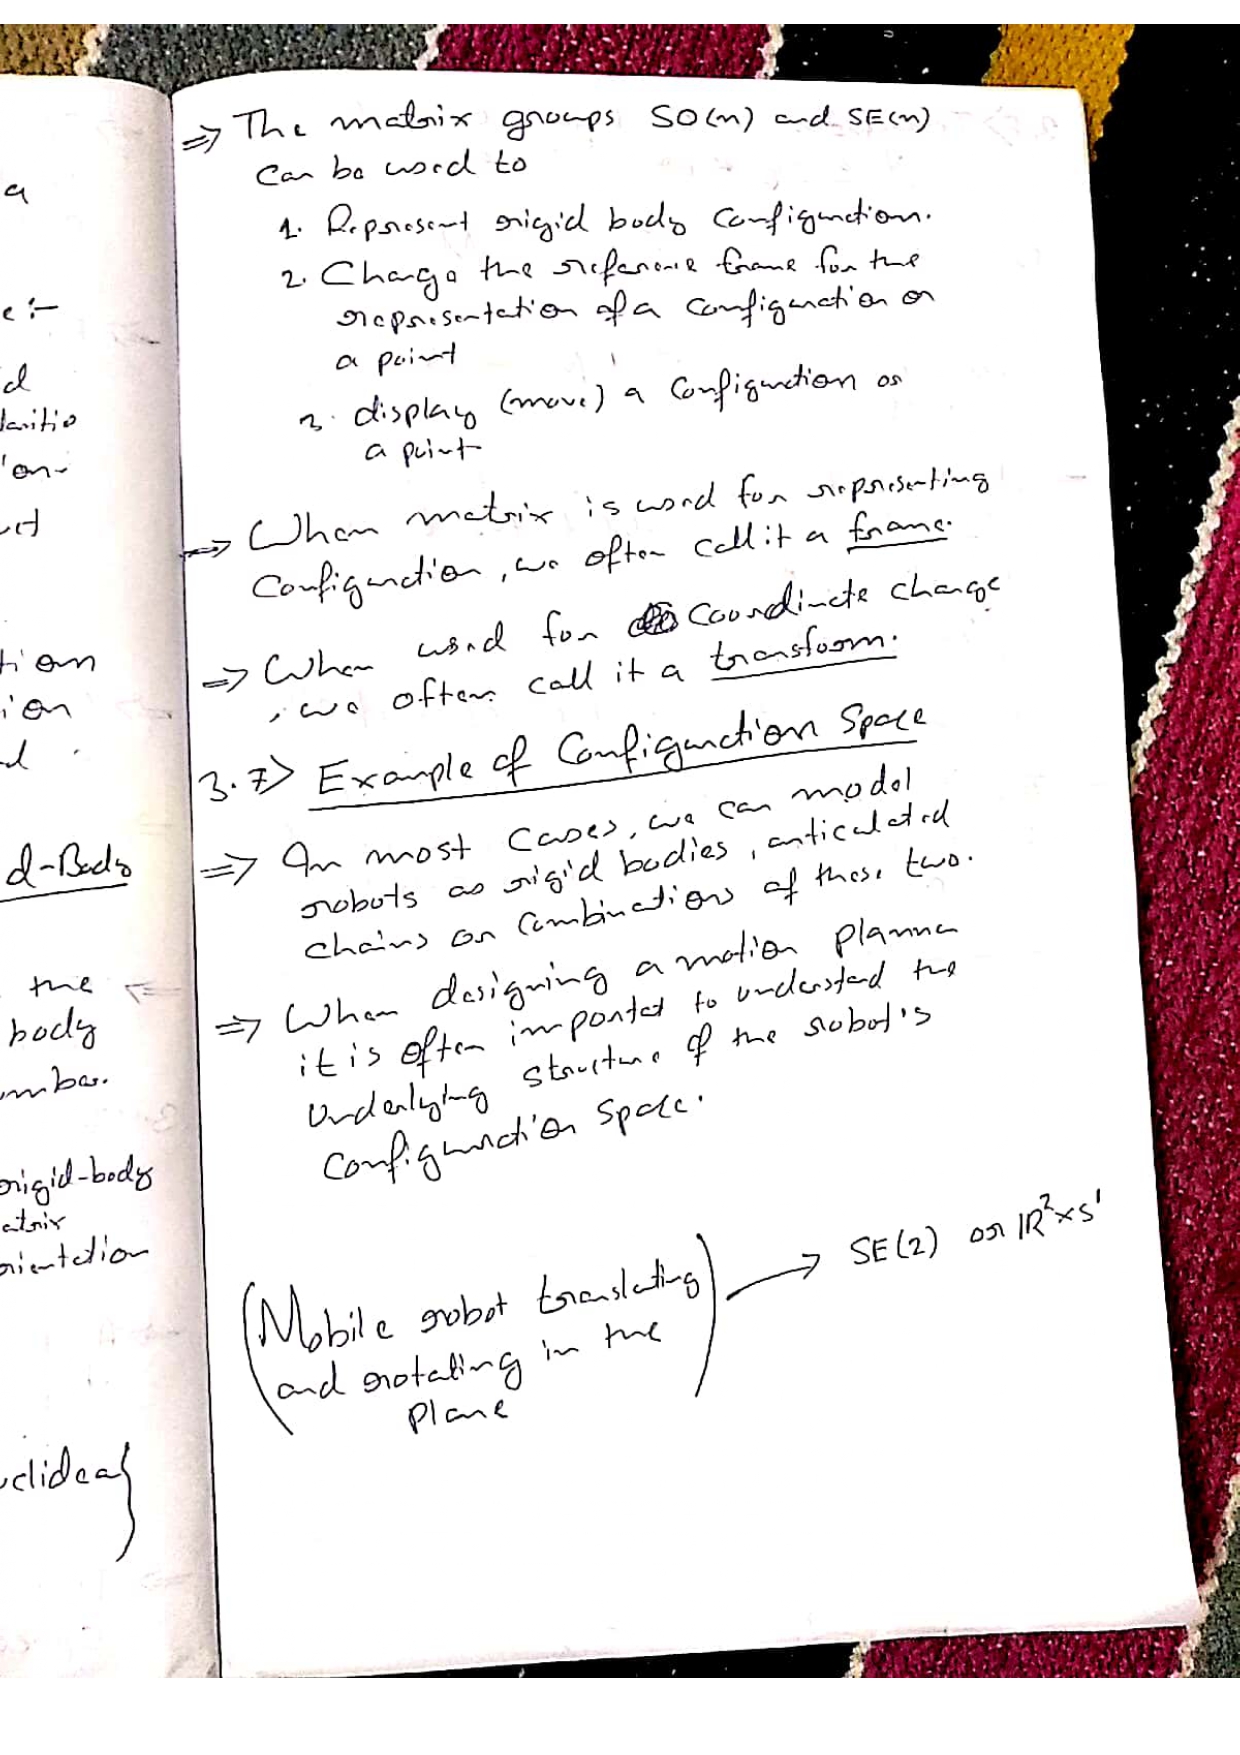 a
e :-
d
laritio
ion-
tion
ion
d-Body
the
body
umber.
rigid-body
atrix
orientation
uclidea}
⇒ The matrix groups SO(n) and SE(n)
can be used to
1. Represent rigid body configuration.
2. Change the reference frame for the
representation of a configuration or
a point
3. display (move) a configuration or
a point
⇒ When matrix is used for representing
Configuration, we often call it a frame.
⇒ When used for coordinate change
, we often call it a transform.
3.7> Example of Configuration Space
⇒ In most cases, we can model
robots as rigid bodies, articulated
chains or combinations of these two.
⇒ When designing a motion planner
it is often importat to understad the
underlying structure of the robot's
configuration space.
(Mobile robot translating
and rotating in the
plane) → SE(2) or ℝ²×S¹